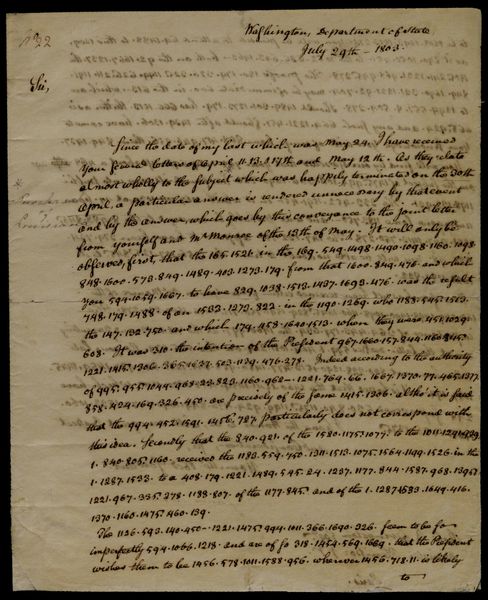 No 22
Washington, Department of State
July 29th - 1803.
Sir,
Since the date of my last which was May 24. I have received
your several letters of April 11. 13. & 17th and May 12th. As they relate
almost wholly to the subject which was happily terminated on the 30th
April, a particular answer is rendered unnecessary by that event
and by the answer, which goes by this conveyance to the joint letter
from yourself and Mr Monroe of the 13th of May. It will only be
observed, first, that the 165. 1521. in the 169. 549. 1498. 1490. 1098. 1160. 1098.
848. 1600. 573. 849. 1489. 403. 1273. 179. from that 1600. 849. 476. and which
you 594. 1059. 1667. to leave 829. 1038. 1513. 1437. 1693. 476. was the result
748. 179. 1488. of an 1533. 1273. 822. in the 1190. 1269. who 1188. 545. 1513.
the 147. 132. 750. and which 179. 458. 1640. 1513. when they were 451. 1029.
608. It was 310. the intention of the President 967. 1660. 157. 844. 1160.
1221. 1415. 1306. 365. 1639. 503. 1139. 476. 278. Indeed according to the authority
of 995. 955. 1044. 968. 23. 823. 1160. 962 - 1221. 769. 66. 1667. 1370. 77. 465. 1377.
858. 424. 169. 326. 450. are precisely of the same 1415. 1306. altho' it is said
that the 994. 452. 1591. 787. particularly does not correspond with
this idea. Secondly that the 840. 921. of the 1580. 1175. 1077. to the 1011.
1. 840. 805. 1160. received the 1183. 559. 750. 1311. 1513. 1075. 1564. 1199. 1526. in the
1. 1287. 1533. to a 408. 179. 1221. 1489. 545. 24. 1237. 1177. 844. 1587. 968.
1221. 967. 335. 278. 1188. 807. of the 1177. 845. and of the 1. 1287. 1533. 1649. 416.
1370. 1160. 1475. 460. 139.
The 1126. 593. 140. 450 - 1221. 1475. 994. 1011. 366. 1690. 326. seem to be so
imperfectly 594. 1066. 1218. and are of so 318. 1454. 569. 1689. that the President
wishes them to be 1456. 578. 1011. 1588. 956. wherever 1456. 718. 11. is likely
to